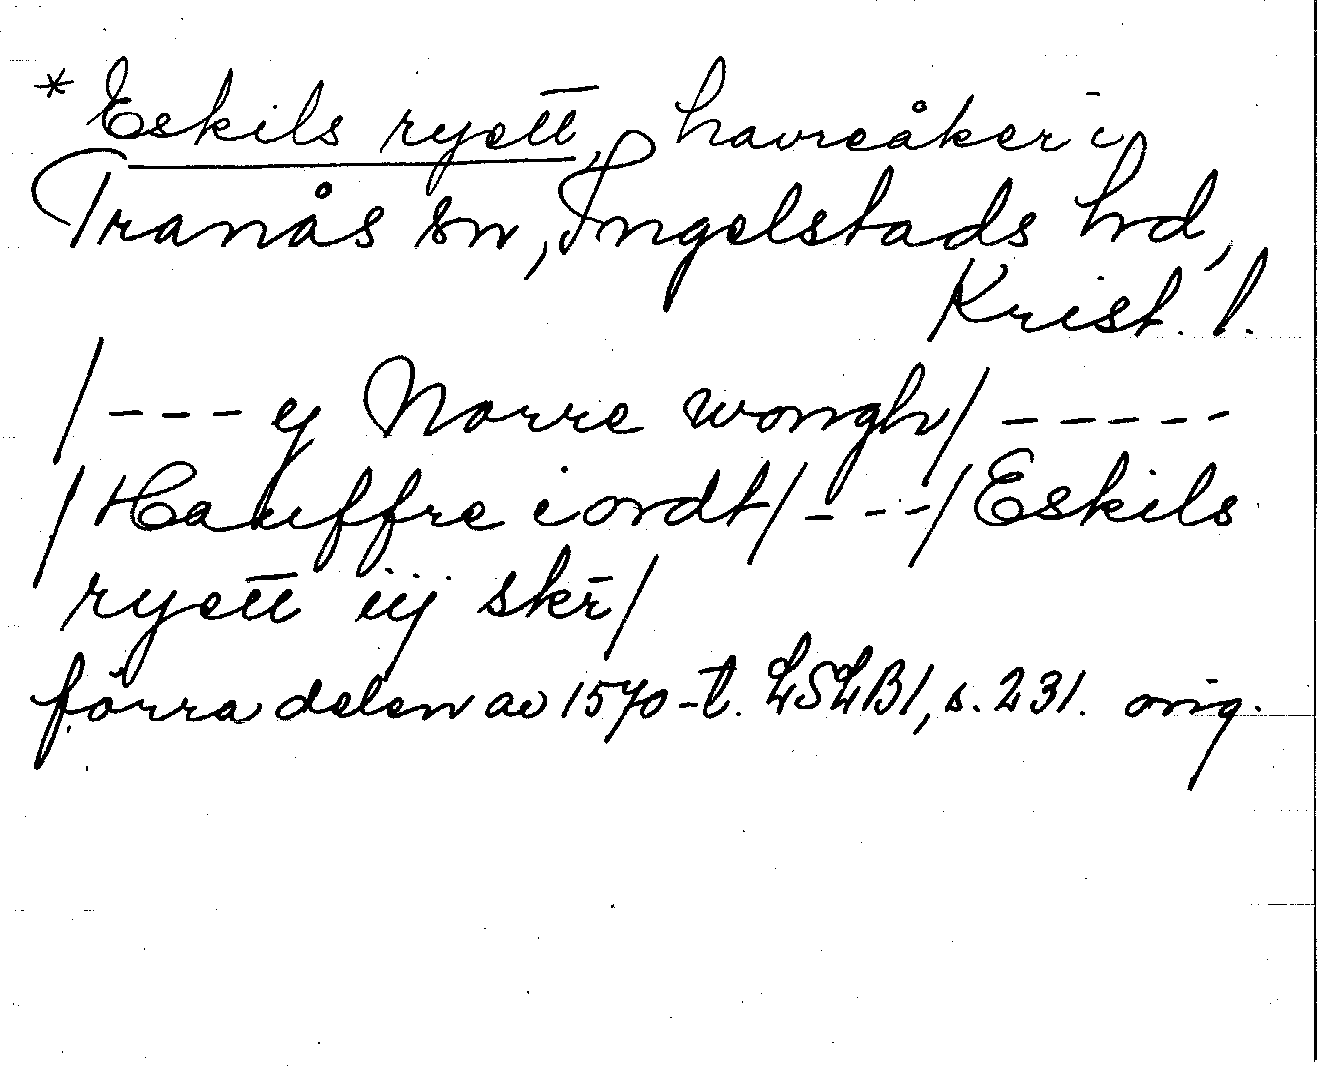 * Eskils ryett, havreåker i
Tranås sn, Ingelstads hd,
Krist. l.
/--- y Norre wongh/-----
/Hauffre iordt/---/Eskils
ryett iij skr̄/
förra delen av 1570-t. LSLB1, s. 231. orig.